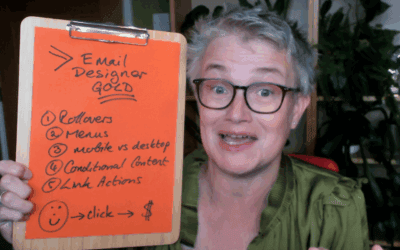 > Email
Designer
GOLD
① Rollovers
② Menus
③ mobile vs desktop
④ Conditional Content
⑤ Link Actions
→ click → $